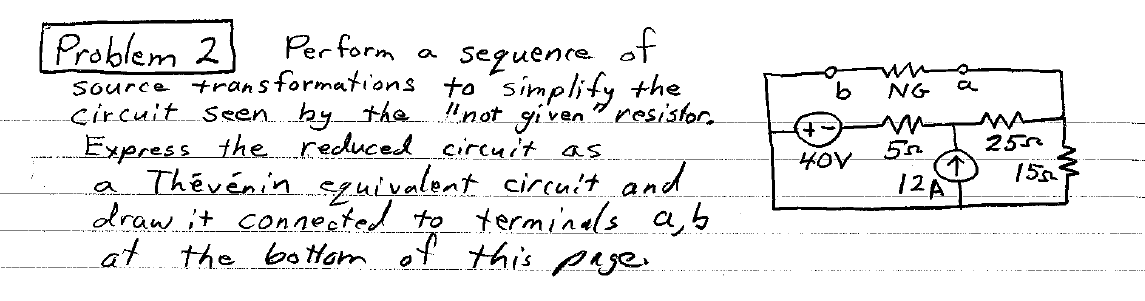 Problem 2 Perform a sequence of
source transformations to simplify the
circuit seen by the "not given" resistor.
Express the reduced circuit as
a Thévénin equivalent circuit and
draw it connected to terminals a,b
at the bottom of this page.
b NG a
+ -
40V 5Ω 25Ω
12A 15Ω